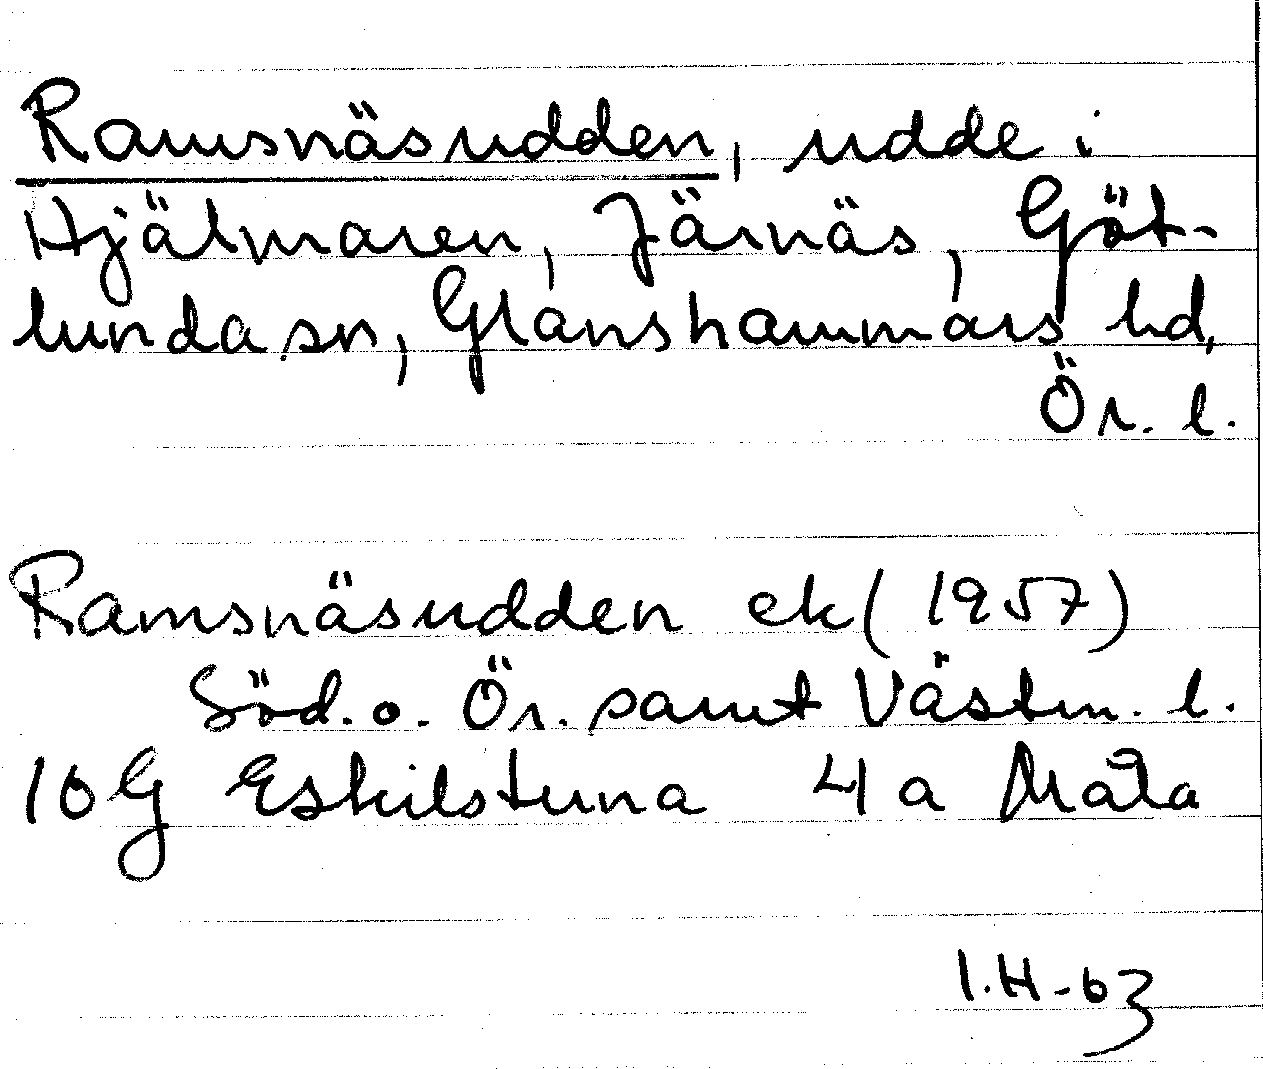 Ramsnäsudden, udde i
Hjälmaren, Järnäs, Göt-
lunda sn, Glanshammars hd,
Ör. l.
Ramsnäsudden ek (1957)
Söd. o. Ör. samt Västm. l.
10G Eskilstuna 4a Mata
I.H-63